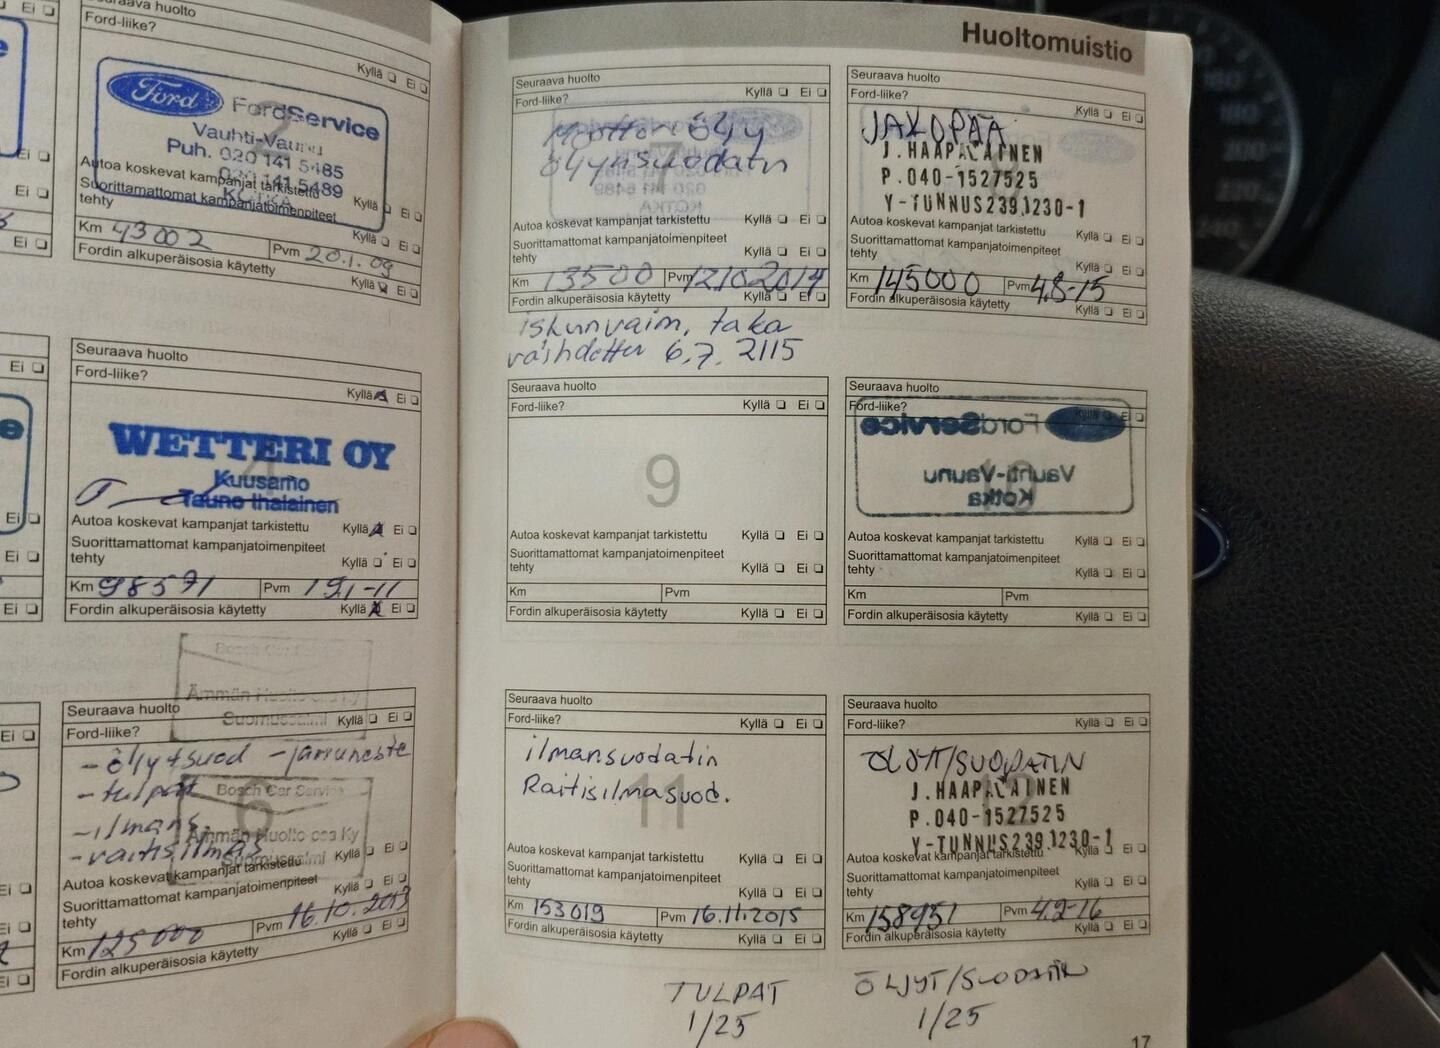 Seuraava huolto
Ford-liike?
Kyllä Ei
Ford FordService
Vauhti-Vaunu
Puh. 020 141 5485
020 141 5489
KOTKA
Autoa koskevat kampanjat tarkistettu
Kyllä Ei
Suorittamattomat kampanjatoimenpiteet
tehty
Kyllä Ei
Km 43002 Pvm 20.1.09
Fordin alkuperäisosia käytetty
Kyllä Ei
Seuraava huolto
Ford-liike?
Kyllä Ei
4
WETTERI OY
Kuusamo
Tauno Ihalainen
Autoa koskevat kampanjat tarkistettu Kyllä Ei
Suorittamattomat kampanjatoimenpiteet
tehty Kyllä Ei
Km 98571 Pvm 19.1-11
Fordin alkuperäisosia käytetty Kyllä Ei
Bosch Car Service
Ämmän Huolto osa Ky
Suomussalmi
Seuraava huolto
Ford-liike? Kyllä Ei
- öljytsuod - jarruneste
- tulpat
- ilmans.
- raitisilmas
6
Bosch Car Service
Ämmän Huolto osa Ky
Suomussalmi
Autoa koskevat kampanjat tarkistettu Kyllä Ei
Suorittamattomat kampanjatoimenpiteet
tehty Kyllä Ei
Km 125000 Pvm 16.10.2013
Fordin alkuperäisosia käytetty Kyllä Ei
Huoltomuistio
Seuraava huolto
Ford-liike? Kyllä Ei
Moottori öljy
öljynsuodatin
Autoa koskevat kampanjat tarkistettu Kyllä Ei
Suorittamattomat kampanjatoimenpiteet
tehty Kyllä Ei
Km 13500 Pvm 12.10.2014
Fordin alkuperäisosia käytetty Kyllä Ei
iskunvaim. taka
vaihdettu 6.7. 2115
Seuraava huolto
Ford-liike?
Kyllä Ei
JAKOPÄÄ
J.HAAPALAINEN
P.040-1527525
Y-TUNNUS2391230-1
Autoa koskevat kampanjat tarkistettu Kyllä Ei
Suorittamattomat kampanjatoimenpiteet
tehty Kyllä Ei
Km 145000 Pvm 4.8-15
Fordin alkuperäisosia käytetty Kyllä Ei
Seuraava huolto
Ford-liike? Kyllä Ei
9
Autoa koskevat kampanjat tarkistettu Kyllä Ei
Suorittamattomat kampanjatoimenpiteet
tehty Kyllä Ei
Km Pvm
Fordin alkuperäisosia käytetty Kyllä Ei
Seuraava huolto
Ford-liike? Kyllä Ei
FordService
Vauhti-Vaunu
Kotka
10
Autoa koskevat kampanjat tarkistettu Kyllä Ei
Suorittamattomat kampanjatoimenpiteet
tehty Kyllä Ei
Km Pvm
Fordin alkuperäisosia käytetty Kyllä Ei
Seuraava huolto
Ford-liike? Kyllä Ei
ilmansuodatin
Raitisilmasuod.
11
Autoa koskevat kampanjat tarkistettu Kyllä Ei
Suorittamattomat kampanjatoimenpiteet
tehty Kyllä Ei
Km 153019 Pvm 16.11.2015
Fordin alkuperäisosia käytetty Kyllä Ei
Seuraava huolto
Ford-liike? Kyllä Ei
ÖLJYT/SUODATIN
J.HAAPALAINEN
P.040-1527525
Y-TUNNUS2391230-1
Autoa koskevat kampanjat tarkistettu Kyllä Ei
Suorittamattomat kampanjatoimenpiteet
tehty Kyllä Ei
Km 158951 Pvm 4.2-16
Fordin alkuperäisosia käytetty Kyllä Ei
TULPAT
1/25
ÖLJYT/SUODATIN
1/25
17